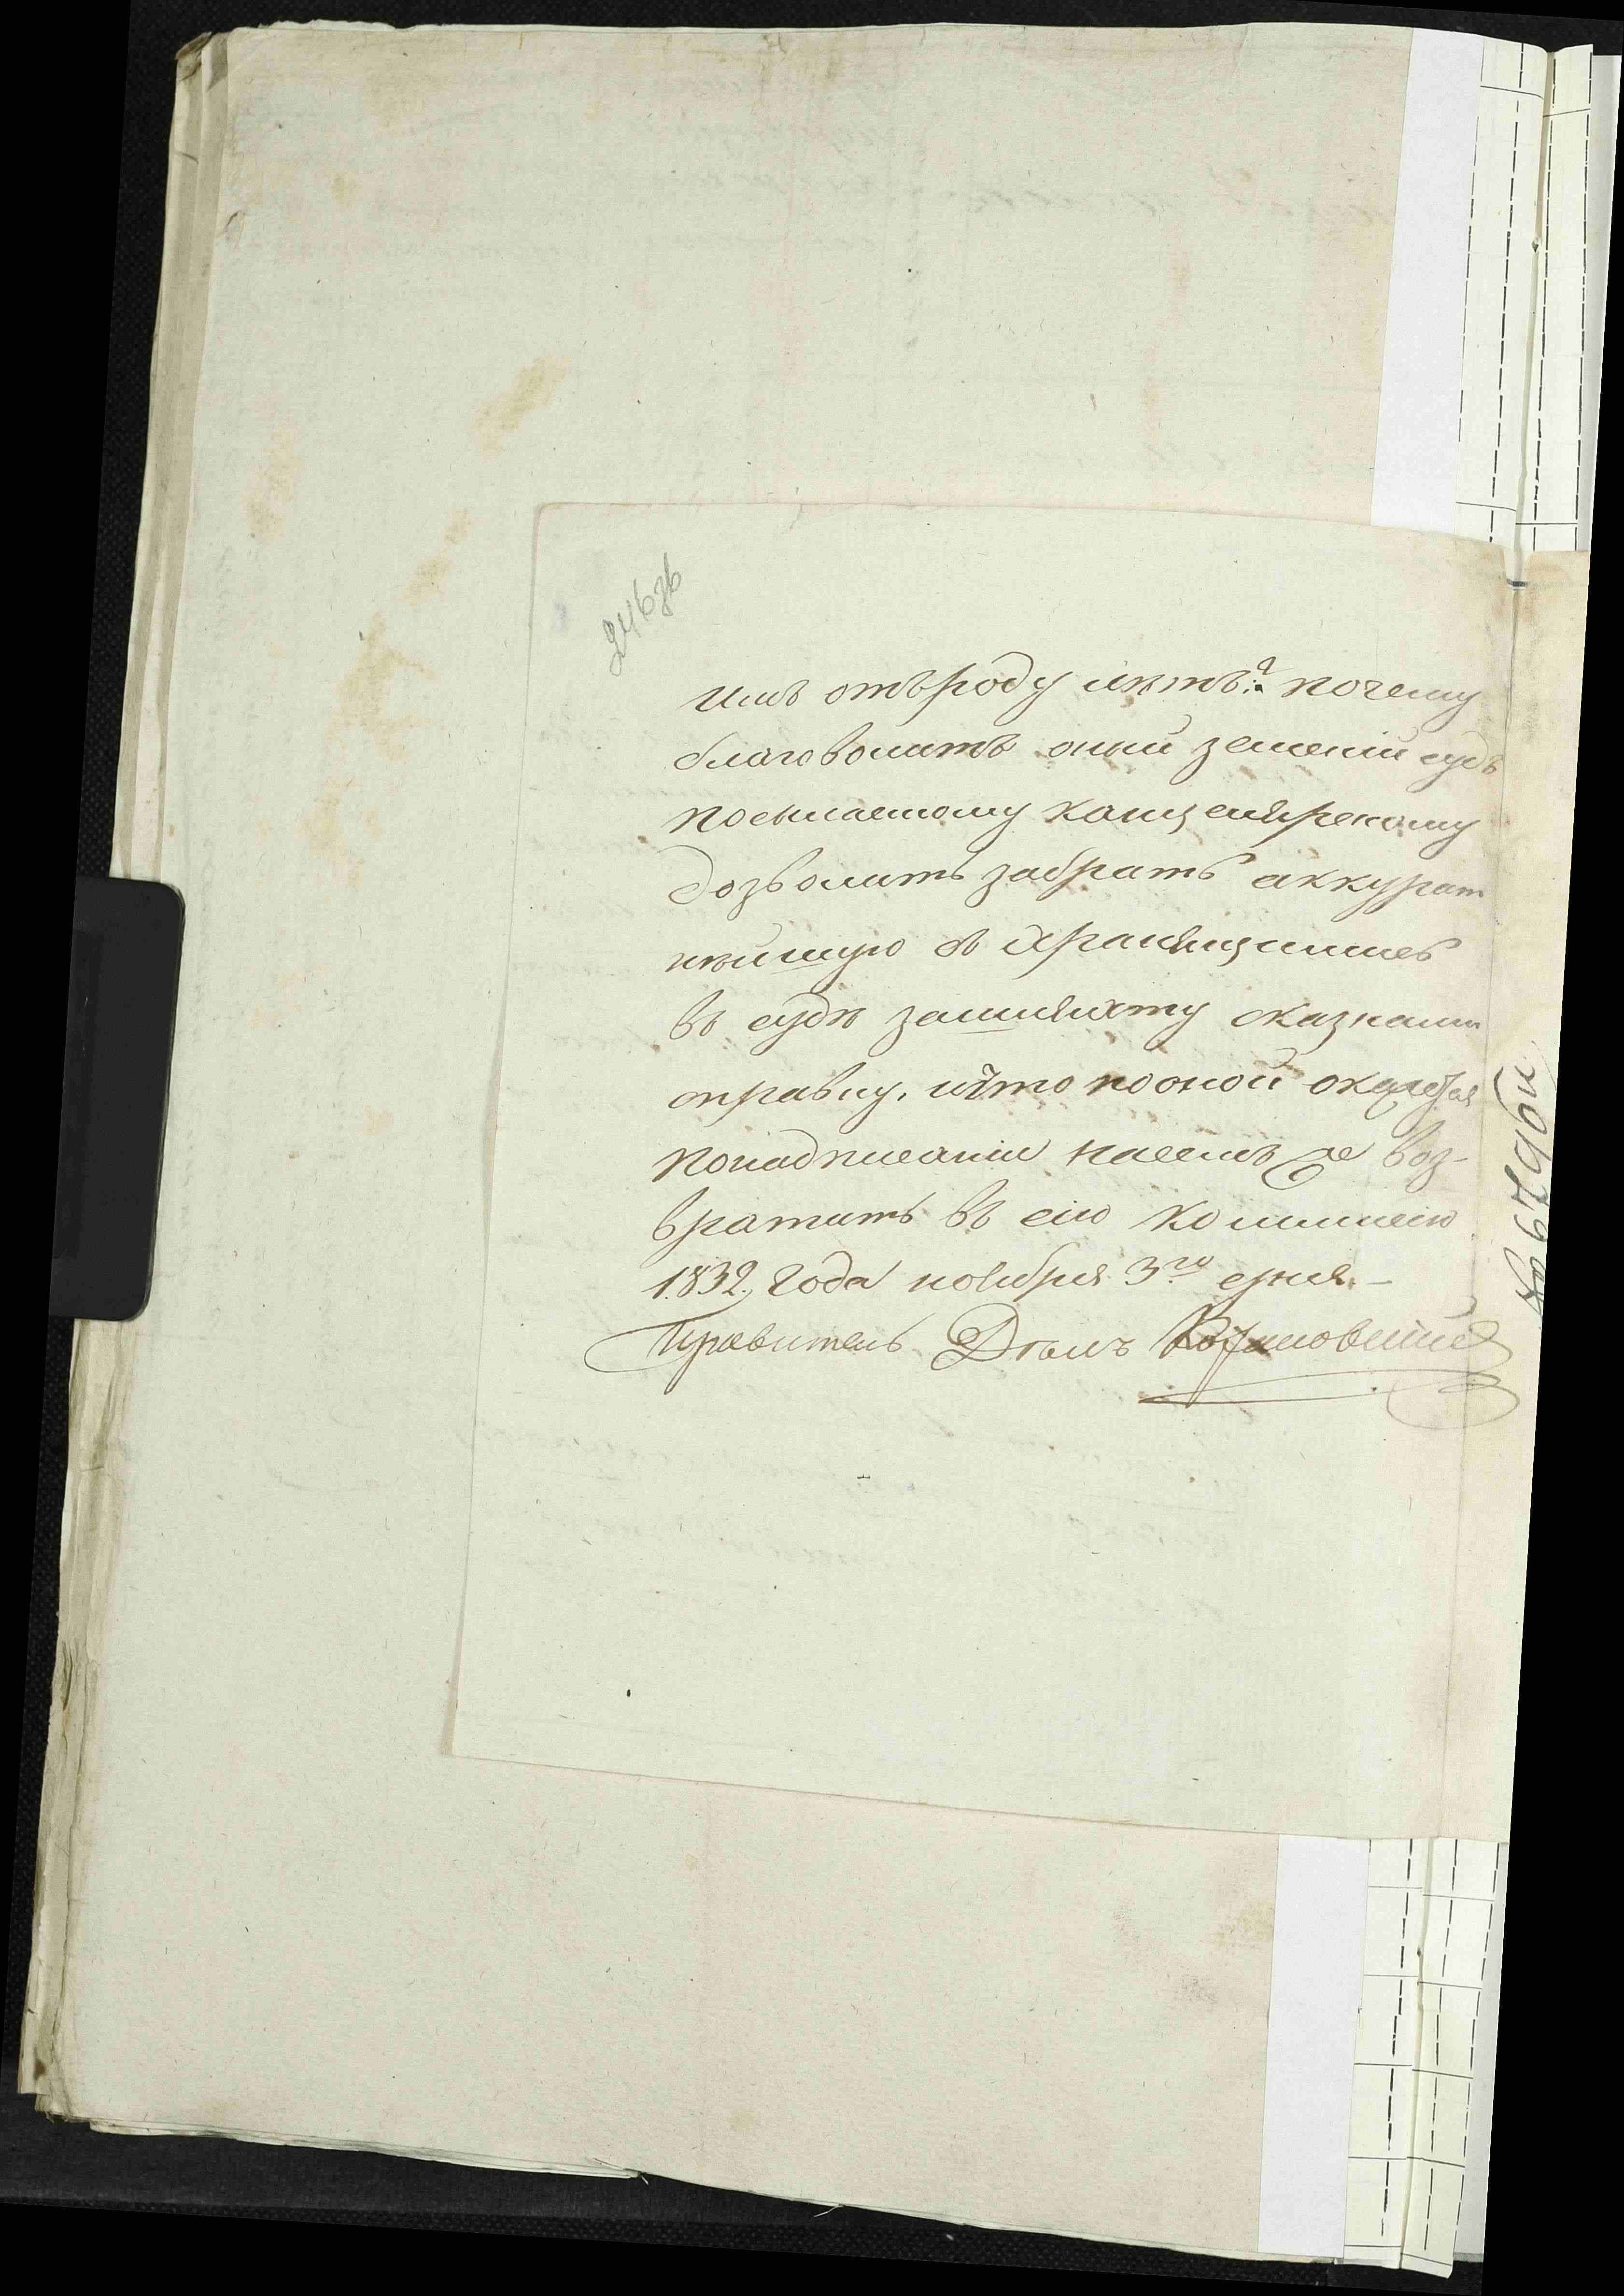 246 зв
имъ отъ роду лѣтъ:? почему
благоволитъ оный земскій судъ
посылаемому канцелярскому
дозволить забрать аккурат
нѣйшую въ хранящимся
въ судѣ сказками
справку, и что по оной окажется
по надписаніи на семъ же воз-
вратить въ сию коммисію
1832, года ноября 3го дня.-
Правитель Дѣлъ